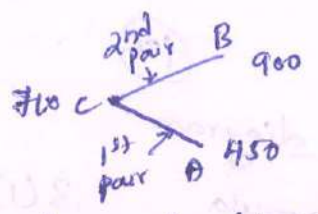 2nd
pair
B
900
710 C
1st
pair
A
450